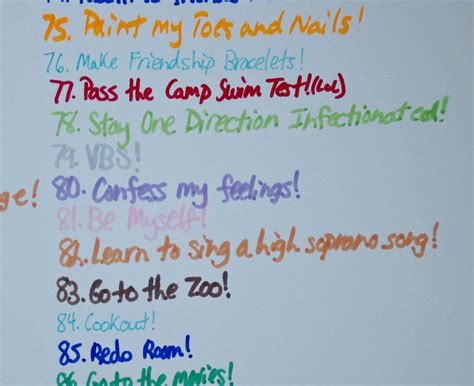 75. Paint my Toes and Nails!
76. Make Friendship Bracelets!
77. Pass the Camp Swim Test! (Lol)
78. Stay One Direction Infectionated!
79. VBS!
80. Confess my feelings!
81. Be Myself!
82. Learn to sing a high soprano song!
83. Go to the Zoo!
84. Cookout!
85. Redo Room!
86. Go to the movies!